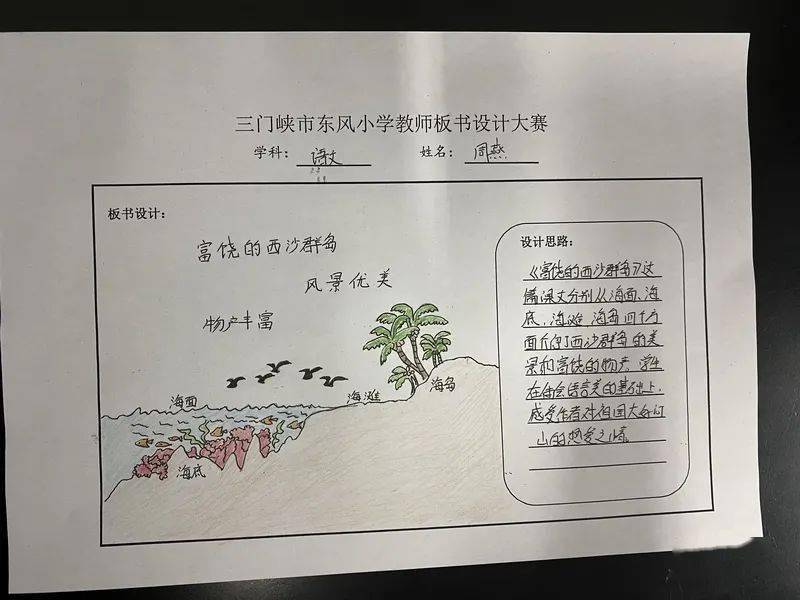 三门峡市东风小学教师板书设计大赛
学科： 语文 姓名： 周燕
板书设计：
富饶的西沙群岛
风景优美
物产丰富
海面
海滩
海岛
海底
设计思路：
《富饶的西沙群岛》这
篇课文分别从海面、海
底、海滩、海岛四个方
面介绍了西沙群岛的美
景和富饶的物产。学生
在体会语言美的基础上，
感受作者对祖国大好河
山的热爱之情。